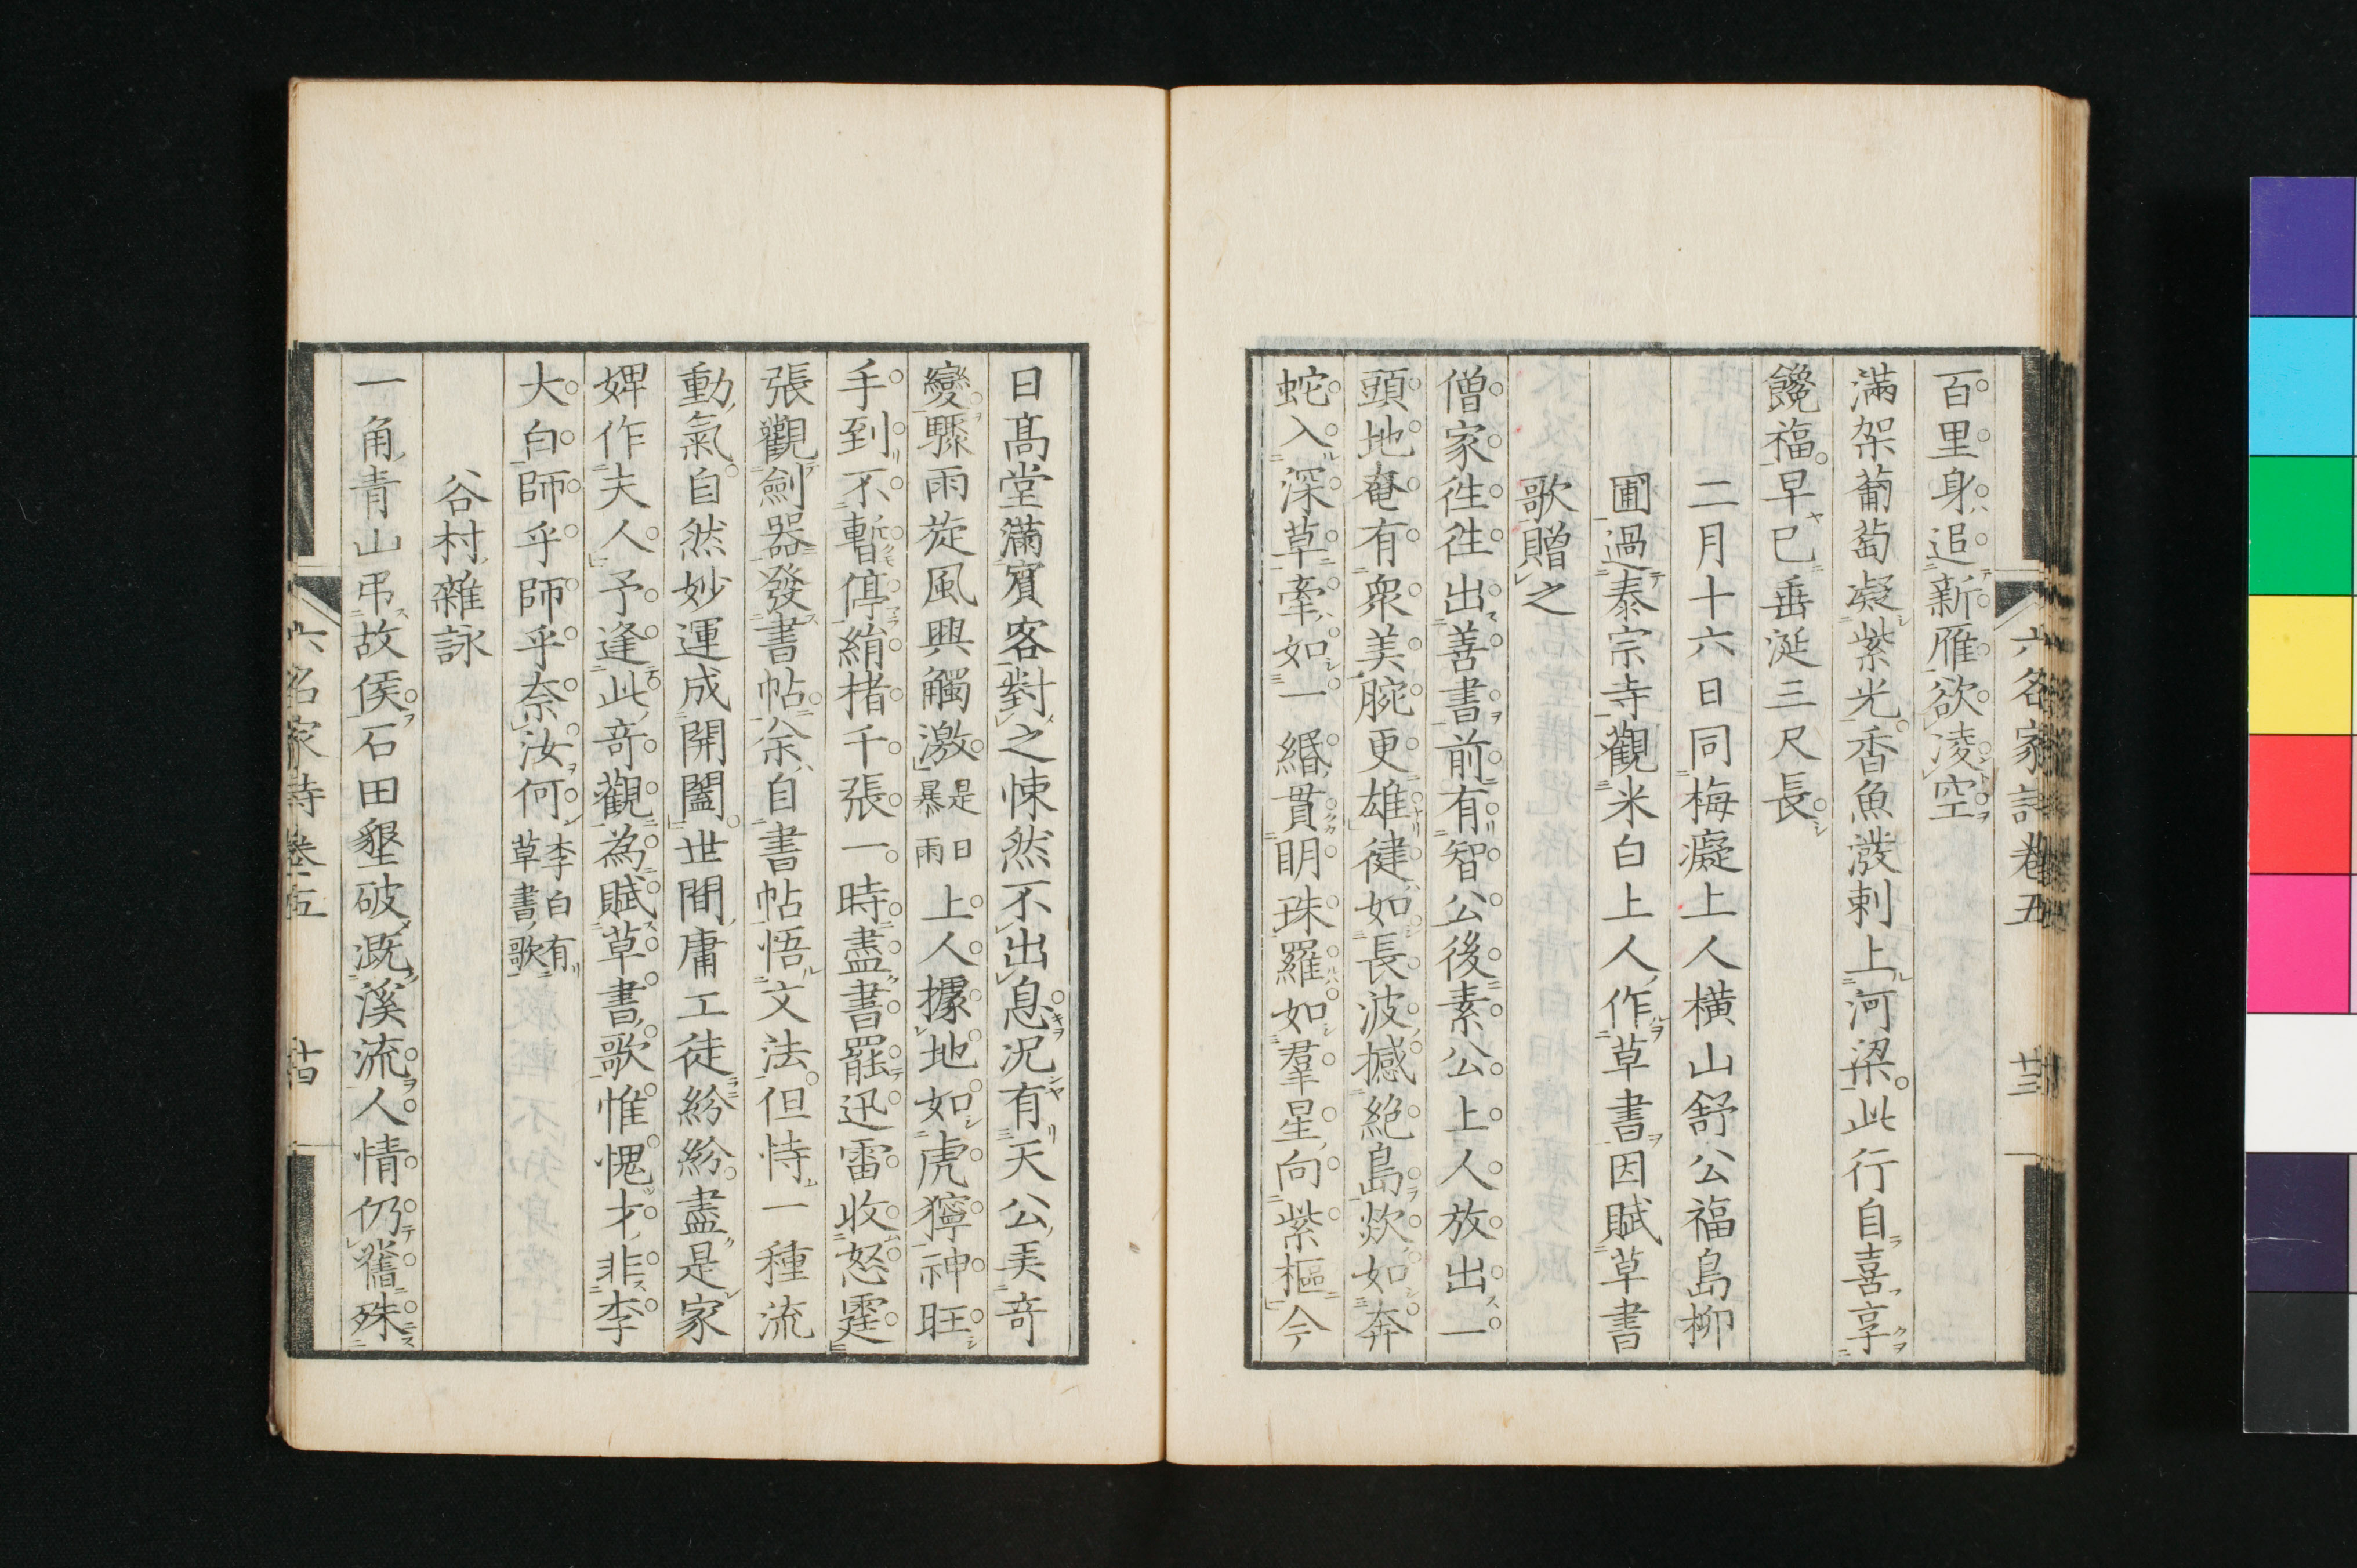 六名家詩卷五
廿三
百里身追新雁欲凌空
滿架葡萄凝紫光香魚潑剌上河梁此行自喜享
饞福早已垂涎三尺長
二月十六日同梅癡上人橫山舒公福島柳
圃過泰宗寺觀米白上人作草書因賦草書
歌贈之
僧家徃徃出善書前有智公後素公上人放出一
頭地奄有衆美腕更雄健如長波撼絶島欻如奔
蛇入深草牽如一緡貫明珠羅如羣星向紫樞今
日髙堂滿賓客對之悚然不出息况有天公美竒
變驟雨旋風興觸激是日暴雨上人攄地如虎獰神旺
手到不暫停絹楮千張一時盡書罷迅雷收怒霆
張觀劍器發書帖余自書帖悟文法但恃一種流
動氣自然妙運成開闔世間庸工徒紛紛盡是家
婢作夫人予逢此竒觀為賦草書歌惟愧才非李
大白師乎師乎奈汝何李白有草書歌
谷村雜詠
一角青山弔故侯石田墾破溉溪流人情仍舊殊
六名家詩卷五
廿四